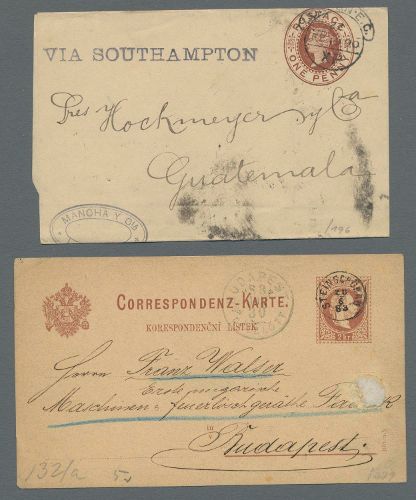 POSTAGE
ONE PENNY
VIA SOUTHAMPTON
Sres Hockmeyer y Ca
Guatemala
MANCHA Y Cia
/196
CORRESPONDENZ-KARTE.
KORESPONDENČNÍ LÍSTEK.
BUDAPEST
2 kr
Herrn Franz Walser
Erste ungarische
Maschinen & feuerlöschgeräthe Fabrik
in
Budapest.
132/a
5.-